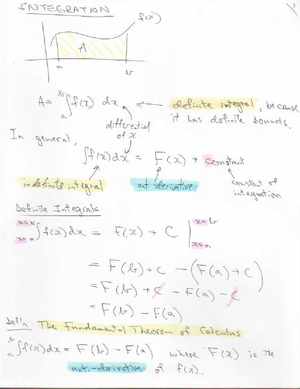 INTEGRATION
f(x)
A
a b
A = ∫ₐᵇ f(x) dx ← definite integral, because
it has definite bounds.
differential
of x
In general,
∫f(x)dx = F(x) + constant
indefinite integral
anti-derivative
constant of
integration
Definite Integrals
x=b
x=a ∫f(x)dx = F(x) + C | x=b
x=a
= F(b) + C - (F(a) + C)
= F(b) + C - F(a) - C
= F(b) - F(a)
Defn The Fundamental Theorem of Calculus
∫ₐᵇ f(x)dx = F(b) - F(a) where F(x) is the
anti-derivative of f(x).